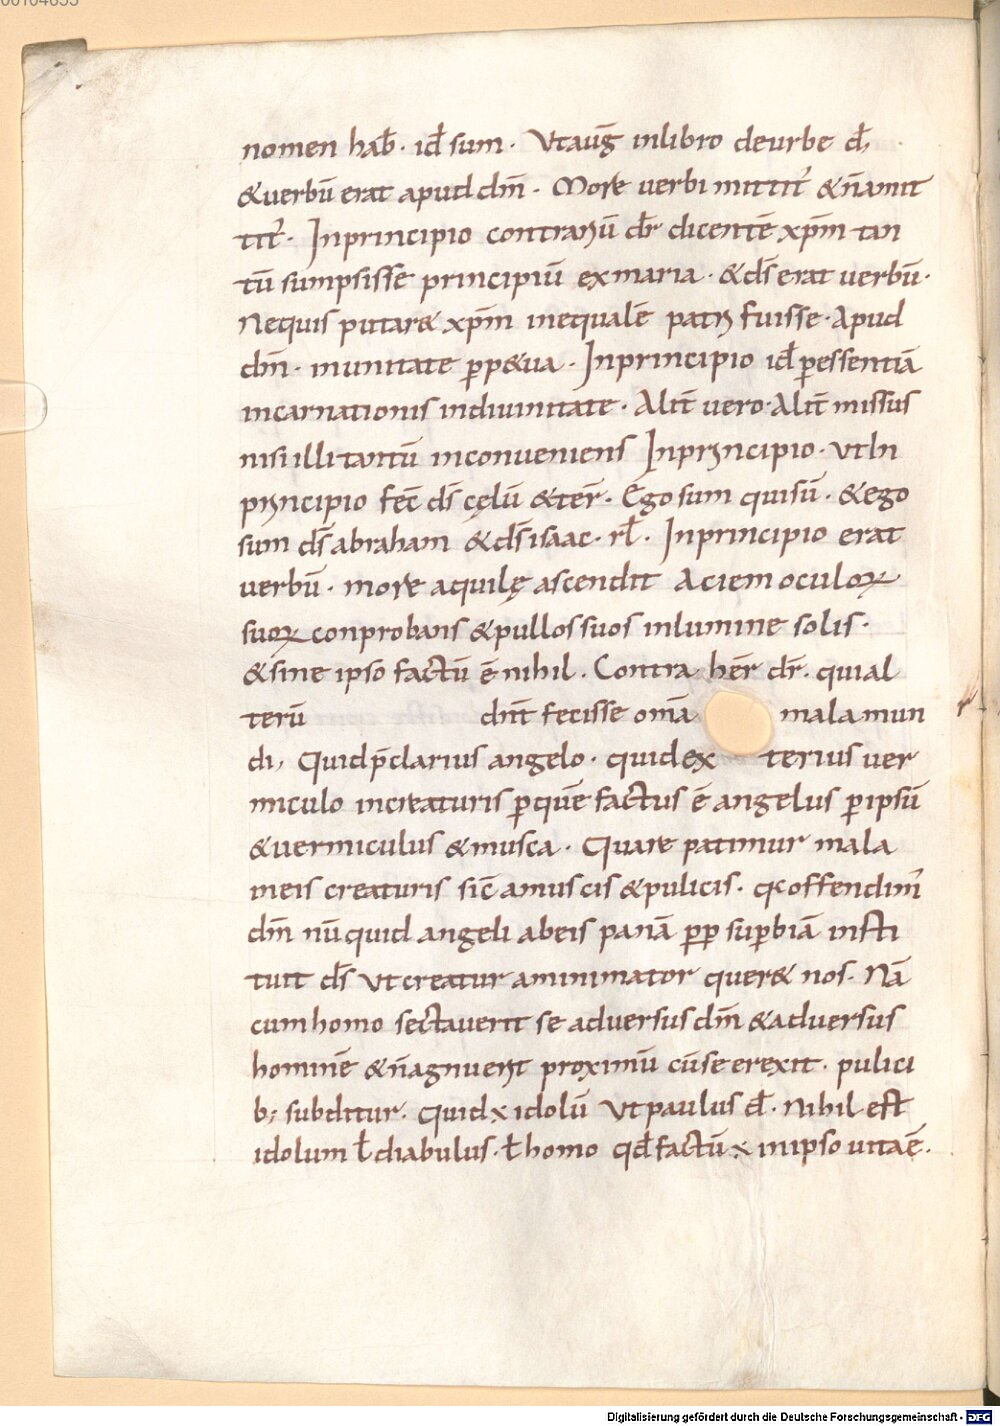 00104655
nomen hab̄· id̄ sum· Ut aug̅ in libro de urbe d̄i,
& uerbū erat apud dm̄· More uerbi mittit᷑ & n̄ amit
tit᷑· In principio contrariū dr̄ dicentē xp̄m tan
tū sumpsisse principiū ex maria· & ds̄ erat uerbū·
Ne quis putar& xp̄m inequalē patris fuisse· Apud
dm̄· in unitate perp&ua· In principio id̄ p̄ essentiā
incarnationis in diuinitate· Alit̄ uero· Alit̄ missus
nisi illi tantū inconueniens In principio· ut In
principio fec̄ ds̄ cęlū & ter̄· Ego sum qui sū· & ego
sum ds̄ abraham & ds̄ isaac· rl̄· In principio erat
uerbū· more aquilę ascendit Aciem oculoꝝ
suoꝝ conprobans & pullos suos in lumine solis·
& sine ipso factū ē nihil· Contra her̄ dr̄· qui al
terū dn̄t fecisse om̄a mala mun
di, Quid p̄clarius angelo· quid exterius uer
miculo in creaturis ꝑ quē factus ē angelus ꝑ ipsū
& uermiculus & musca· Quare patimur mala
in eis creaturis sic̄ a muscis & pulicis· qc offendim᷑
dm̄ nūquid angeli ab eis panā ꝑp suꝑbiā insti
tuit ds̄ ut creatur a minimator quer& nos· Nā
cum homo sectauerit se aduersus dm̄ & aduersus
hominē & n̄ agnuerit proximū cū se erexit· pulici
b; subditur· Quid x idolū Ut paulus d̄· Nihil est
idolum ł diabulus· ł homo qd̄ factū x in ipso uita ē·
Digitalisierung gefördert durch die Deutsche Forschungsgemeinschaft - DFG